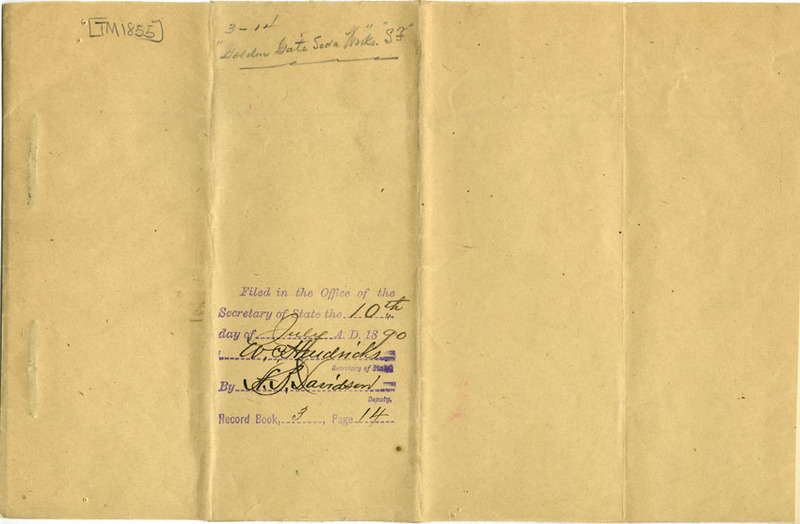 [TM1855]
3-14
"Golden Gate Soda Works." "SF"
Filed in the Office of the
Secretary of State the 10th
day of July A. D. 1890
W. C. Hendricks
Secretary of State
By Davidson
Deputy,
Record Book, 3, Page 14